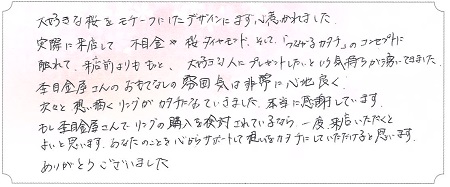 大好きな桜をモチーフにしたデザインにまず心惹かれました。
実際に来店して 木目金や桜ダイヤモンド、そして「つながるカタチ」のコンセプトに
触れて、来店前よりもっと、大好きな人にプレゼントしたいという気持ちから高いできました。
杢目金屋さんのおもてなしの雰囲気は非常に心地良く、
次々と想い描くリングがカタチになっていきました。本当に感謝しています。
もし杢目金屋さんでリングの購入を検討されているなら、一度来店いただくと
よいと思います。あなたのことを心からサポートして想いをカタチにしていただけると思います。
ありがとうございました